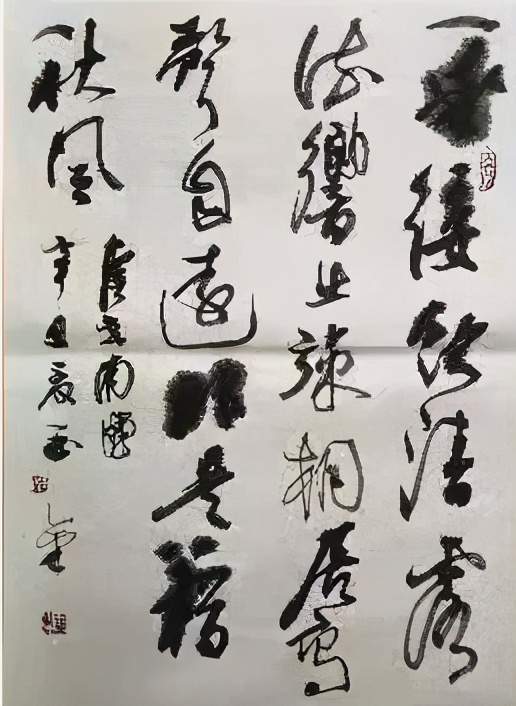 垂緌飲清露
流響出疎桐居高
聲自遠非是藉
秋風
虞世南蟬
辛丑夏